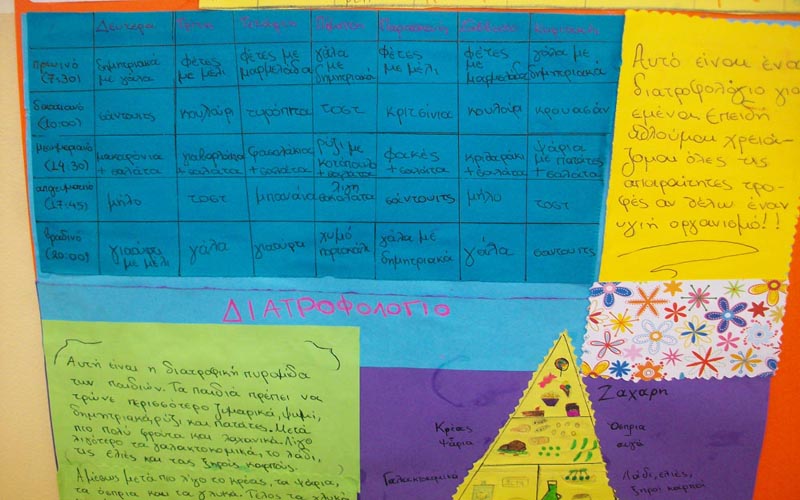 Δευτέρα Τρίτη Τετάρτη Πέμπτη Παρασκευή Σάββατο Κυριακή
πρωινό (7:30) δημητριακά με γάλα φέτες με μέλι φέτες με μαρμελάδα γάλα με δημητριακά φέτες με μέλι φέτες με μαρμελάδα γάλα με δημητριακά
δεκατιανό (10:00) σάντουιτς κουλούρι τυρόπιτα τοστ κριτσίνια κουλούρι κρουασάν
μεσημεριανό (14:30) μακαρόνια + σαλάτα γιαβαρλάκια + σαλάτα φασολάκια + σαλάτα ρύζι με κοτόπουλο + σαλάτα φακές + σαλάτα κριθαράκι + σαλάτα ψάρια με πατάτες + σαλάτα
απογευματινό (17:45) μήλο τοστ μπανάνα λίγη σοκολάτα σάντουιτς μήλο τοστ
βραδινό (20:00) γιαούρτι με μέλι γάλα γιαούρτι χυμό πορτοκάλι γάλα με δημητριακά γάλα σάντουιτς
Αυτό είναι ένα
διατροφολόγιο για
εμένα. Επειδή
αθλούμαι χρειά-
ζομαι όλες τις
απαραίτητες τρο-
φές αν θέλω έναν
υγιή οργανισμό!!
ΔΙΑΤΡΟΦΟΛΟΓΙΟ
Αυτή είναι η διατροφική πυραμίδα
των παιδιών. Τα παιδιά πρέπει να
τρώνε περισσότερο ζυμαρικά, ψωμί,
δημητριακά, ρύζι και πατάτες. Μετά
πιο πολύ φρούτα και λαχανικά. Λίγο
λιγότερο τα γαλακτοκομικά, το λάδι,
τις ελιές και τους ξηρούς καρπούς.
Αμέσως μετά πιο λίγο το κρέας, τα ψάρια,
τα όσπρια και τα γλυκά. Τέλος τα
Ζάχαρη
Κρέας
Ψάρια
Όσπρια
αυγά
Γαλακτοκομικά
Λάδι, ελιές,
ξηροί καρποί